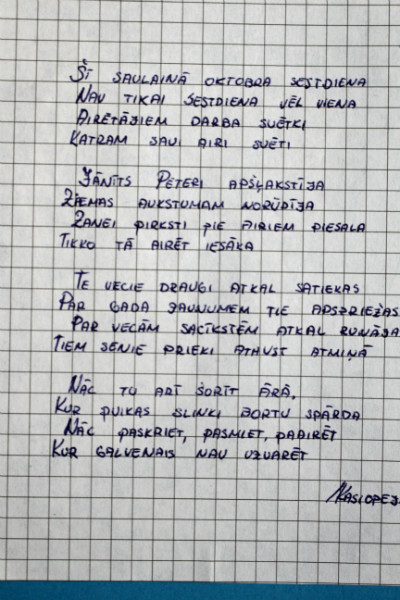 Šī saulainā oktobra sestdiena
Nav tikai sestdiena vēl viena
Airētājiem darba svētki
Katram savi airi svēti
Jānīts Pēteri apšļakstīja
Ziemas aukstumam norūdīja
Žanei pirksti pie airiem piesala
Tikko tā airēt iesāka
Te vecie draugi atkal satiekas
Par gada jaunumem tie apspriežas
Par vecām sacīkstēm atkal runāja
Tiem senie prieki ataust atmiņā
Nāc tu arī šorīt ārā,
Kur puikas slinki bortu spārda
Nāc paskriet, pasmiet, paairēt
Kur galvenais nav uzvarēt